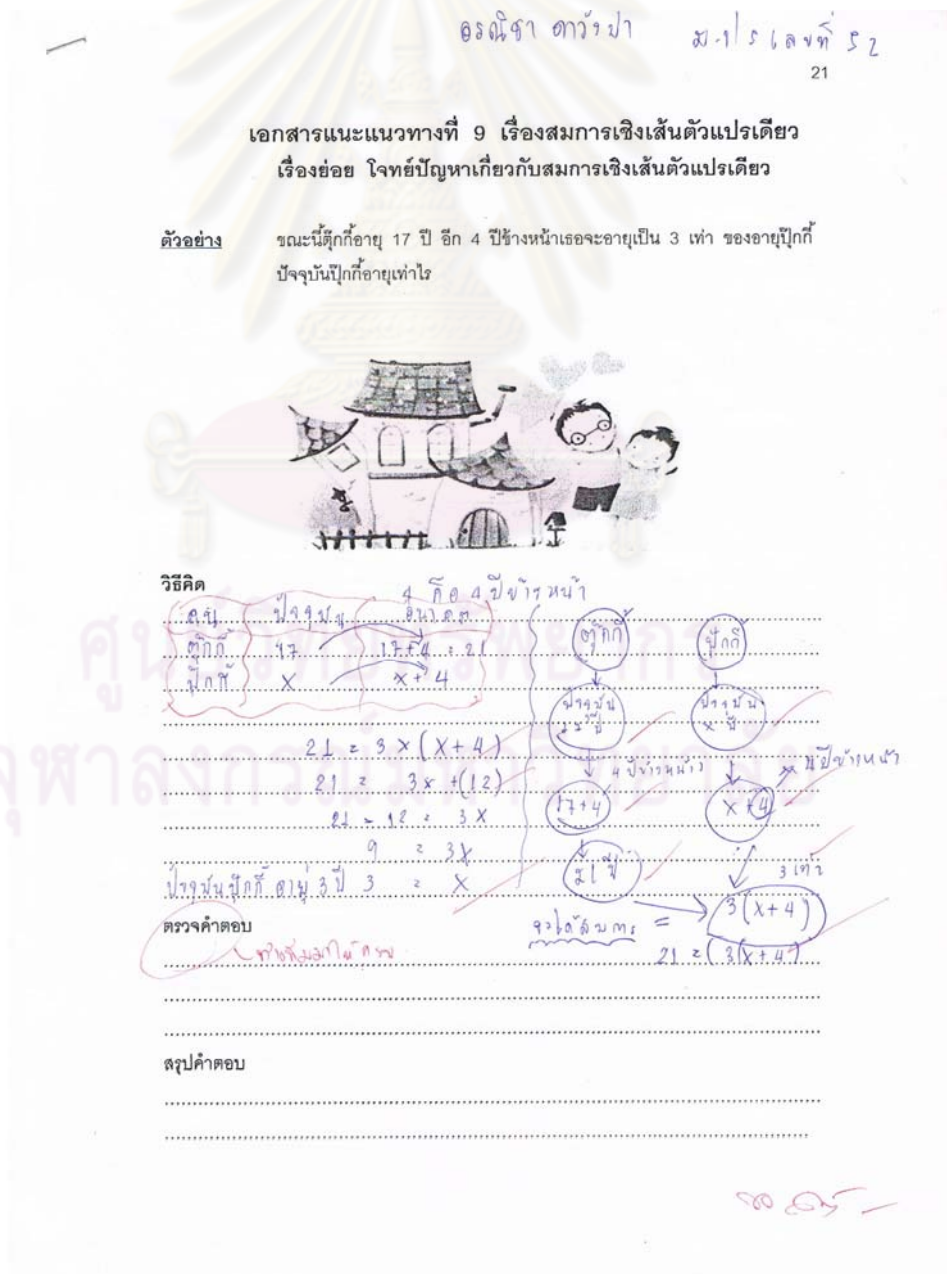 อรณิชา ดาวังปา ม.1/5 เลขที่ 52
21
เอกสารแนะแนวทางที่ 9 เรื่องสมการเชิงเส้นตัวแปรเดียว
เรื่องย่อย โจทย์ปัญหาเกี่ยวกับสมการเชิงเส้นตัวแปรเดียว
ตัวอย่าง ขณะนี้ตุ๊กกี้อายุ 17 ปี อีก 4 ปีข้างหน้าเธอจะอายุเป็น 3 เท่า ของอายุปุ๊กกี้
ปัจจุบันปุ๊กกี้อายุเท่าไร
วิธีคิด
4 คือ 4 ปีข้างหน้า
คน ปัจจุบัน อนาคต
ตุ๊กกี้ 17 17+4 = 21
ปุ๊กกี้ x x+4
21 = 3 × (x+4)
21 = 3x +(12)
21 - 12 = 3x
9 = 3x
ปัจจุบันปุ๊กกี้ อายุ 3 ปี 3 = x
ตุ๊กกี้ ปุ๊กกี้
ปัจจุบัน ปี ปัจจุบัน x ปี
4 ปีข้างหน้า 4 ปีข้างหน้า
17+4 x+4
21 ปี 3 เท่า
จะได้สมการ = 3(x+4)
21 = (3(x+4)
ตรวจคำตอบ
สรุปคำตอบ
ศูนย์วิทยทรัพยากร
จุฬาลงกรณ์มหาวิทยาลัย